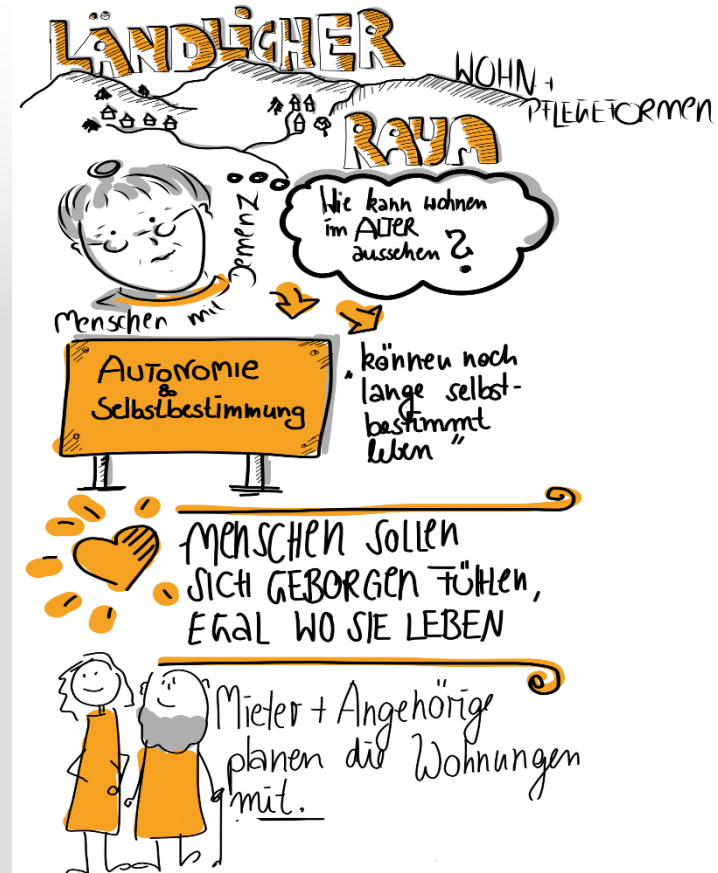 LÄNDLICHER
RAUM
WOHN +
PFLEGEFORMEN
Wie kann wohnen
im ALTER
aussehen?
Menschen mit Demenz
AUTONOMIE
&
Selbstbestimmung
"können noch
lange selbst-
bestimmt
leben"
MENSCHEN SOLLEN
SICH GEBORGEN FÜHLEN,
EGAL WO SIE LEBEN
Mieter + Angehörige
planen die Wohnungen
mit.